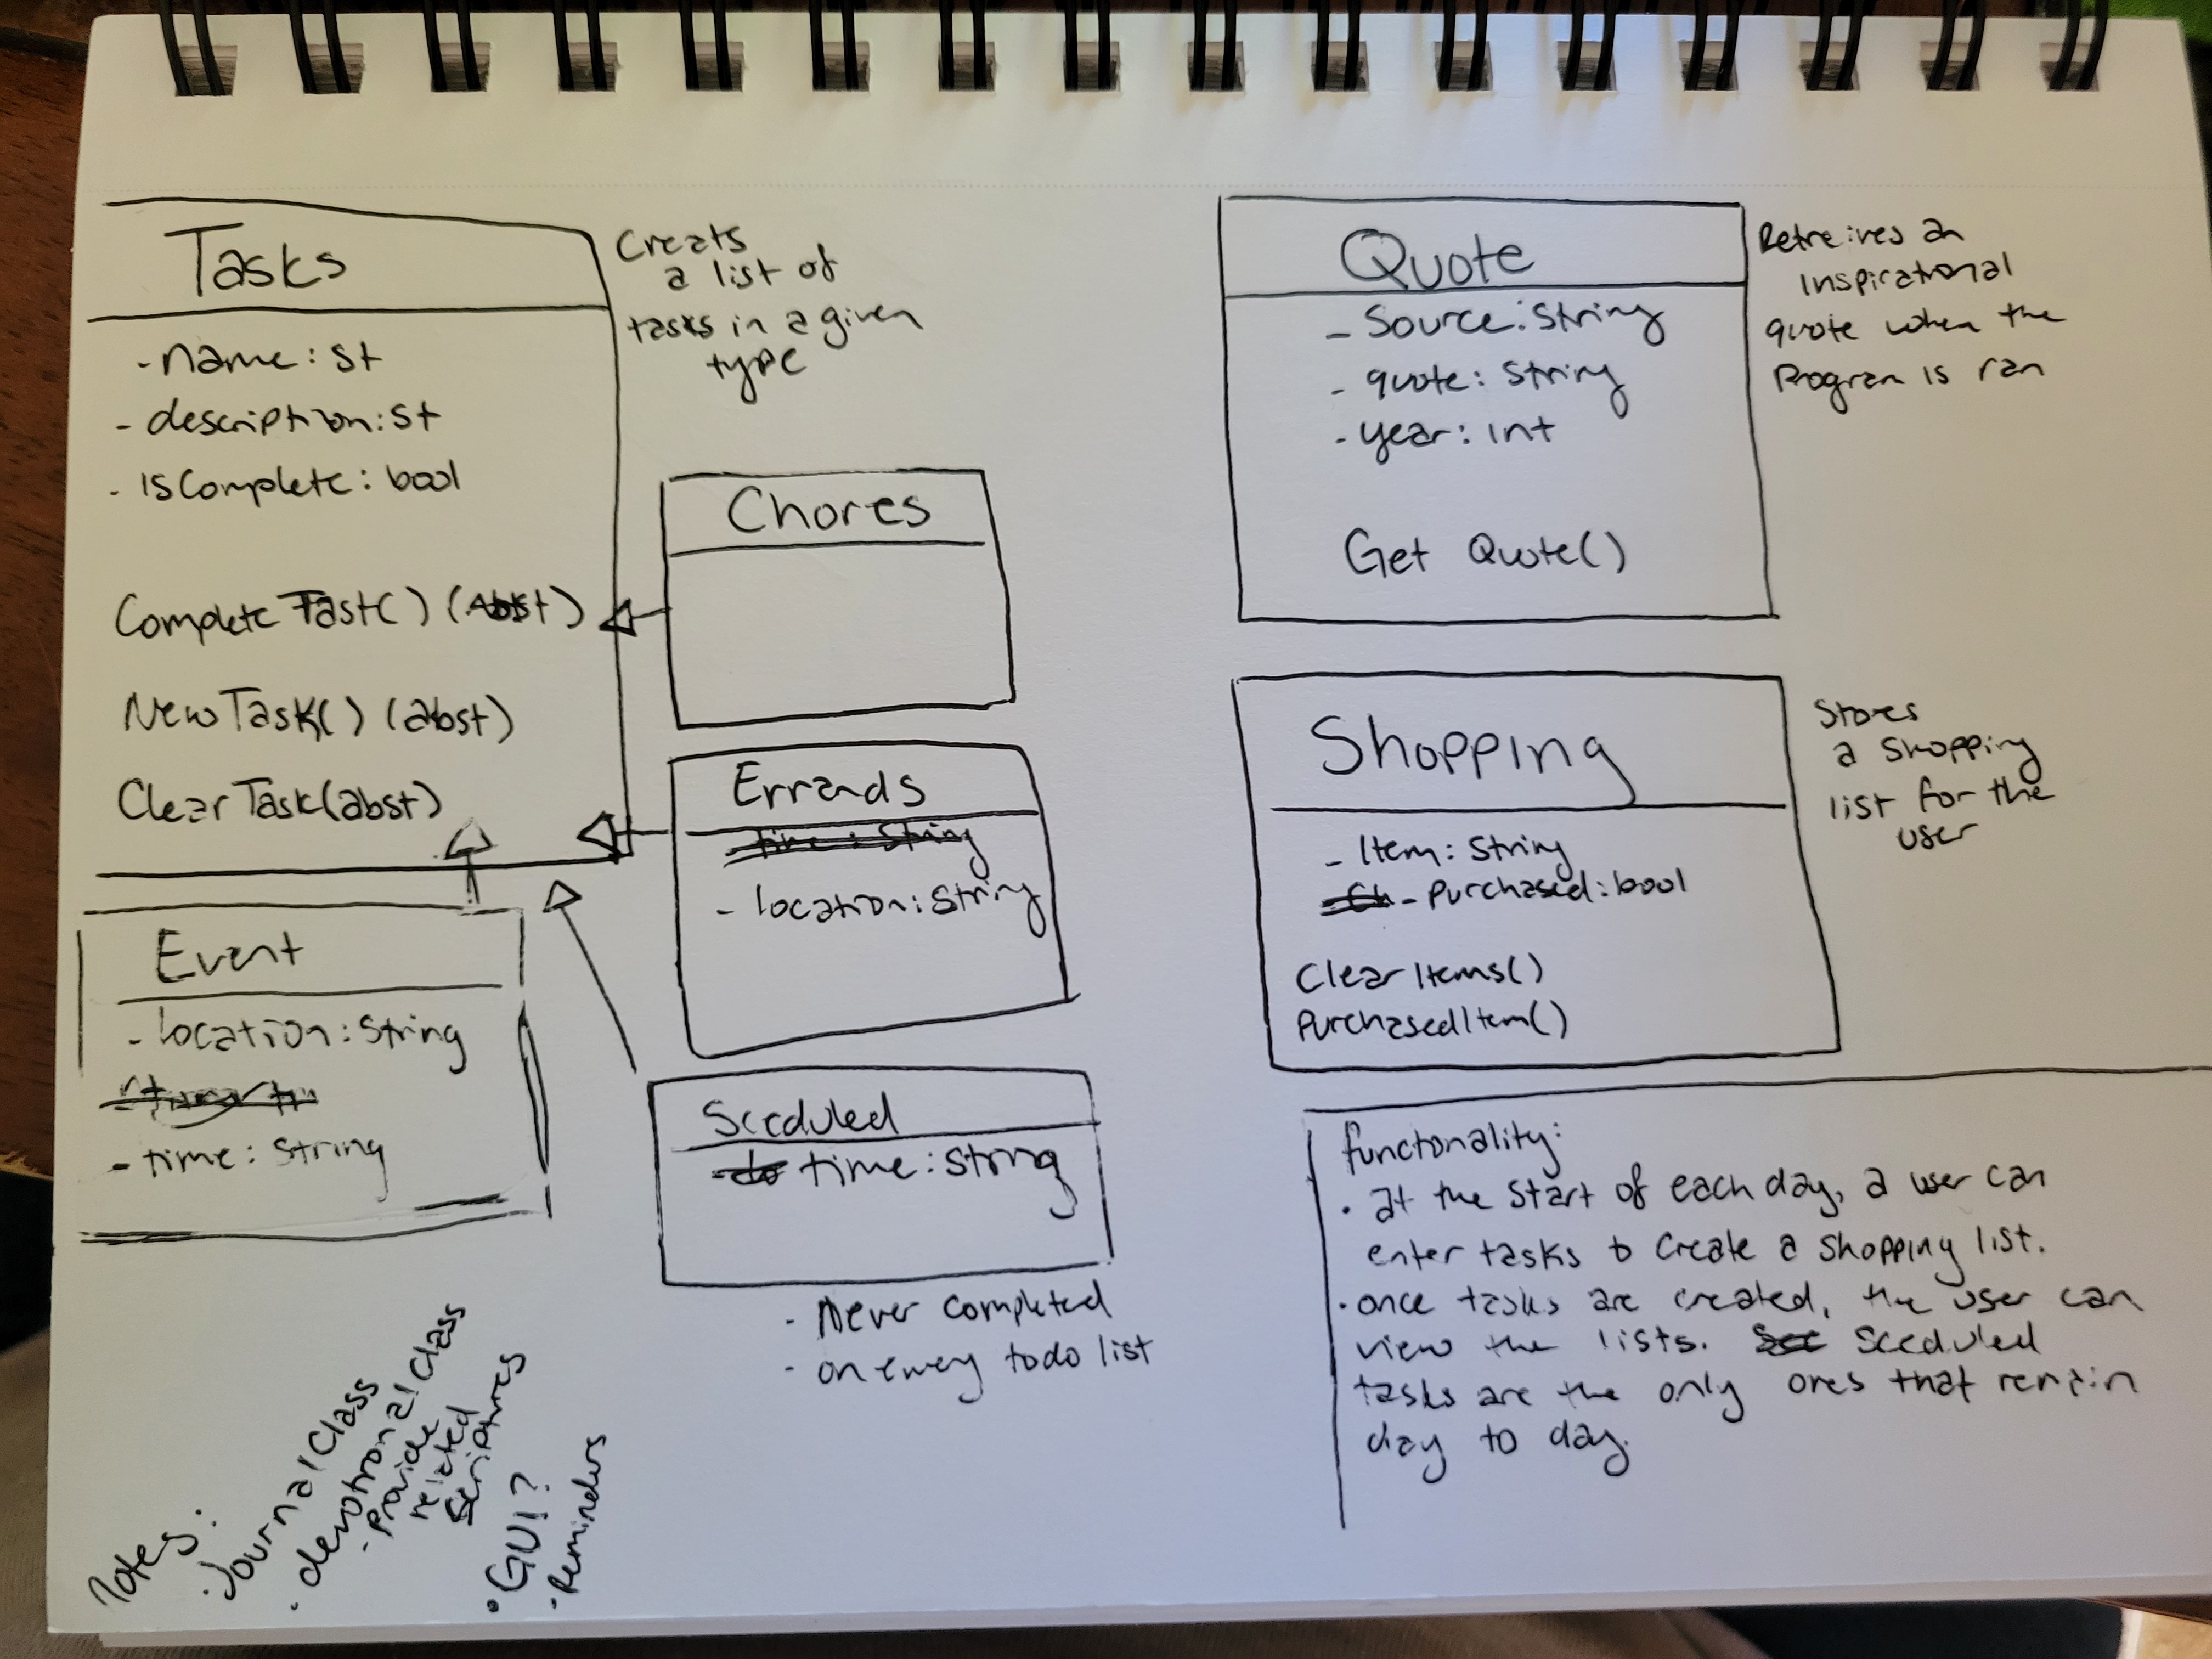 Tasks
- name: st
- description: st
- isComplete: bool
Complete Task() (Abst)
New Task() (abst)
Clear Task(abst)
Creats
a list of
tasks in a given
type
Event
- location: string
- time: string
Chores
Errands
- time: string
- location: string
Sceduled
- do time: string
- Never completed
- on every todo list
Notes:
. Journal Class
. devotional Class
- provide
related
scriptures
• GUI?
- Reminders
Quote
- Source: string
- quote: string
- year: int
Get Quote()
Retreives an
inspirational
quote when the
Program is ran
Shopping
- Item: string
- Purchased: bool
Clear Items()
Purchased Item()
Stores
a shopping
list for the
user
functionality:
• at the start of each day, a user can
enter tasks to create a shopping list.
• once tasks are created, the user can
view the lists. Sceduled
tasks are the only ones that remain
day to day.